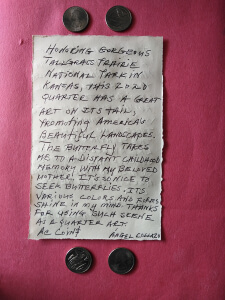 HONORING GORGEOUS
TALLGRASS PRAIRIE
NATIONAL PARK IN
KANSAS, THIS 2020
QUARTER HAS A GREAT
ART ON ITS TAIL,
PROMOTING AMERICA'S
BEAUTIFUL LANDSCAPES.
THE BUTTERFLY TAKES
ME TO A DISTANT CHILDHOOD
MEMORY WITH MY BELOVED
MOTHER. IT'S SO NICE TO
SEEK BUTTERFLIES. ITS
VARIOUS COLORS AND FORMS
SHINE IN MY MIND. THANKS
FOR USING SUCH SCENE
AS QUARTER ART.
ANGEL COLLAZO